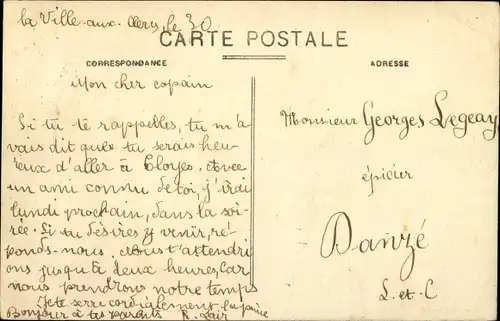 la Ville-aux-Clercs, le 30
CARTE POSTALE
CORRESPONDANCE
ADRESSE
Mon cher copain
Si tu te rappelles, tu m'a
vais dit que tu serais heu-
reux d'aller à Cloyes. Avec
un ami connu de toi, j'irai
lundi prochain, dans la soi-
rée. Si tu désires y venir, ré-
ponds-nous. Nous t'attendri
ons jusqu'à deux heures, car
nous prendrons notre temps
Je te serre cordialement la
Bonjour à tes parents R.
Monsieur Georges Legeay
épicier
Danzé
L.-et-C